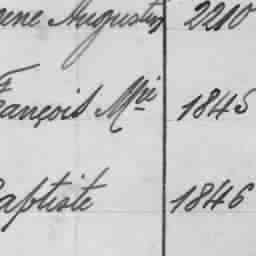 ene Augustin 2210
François Mie 1845
Baptiste 1846